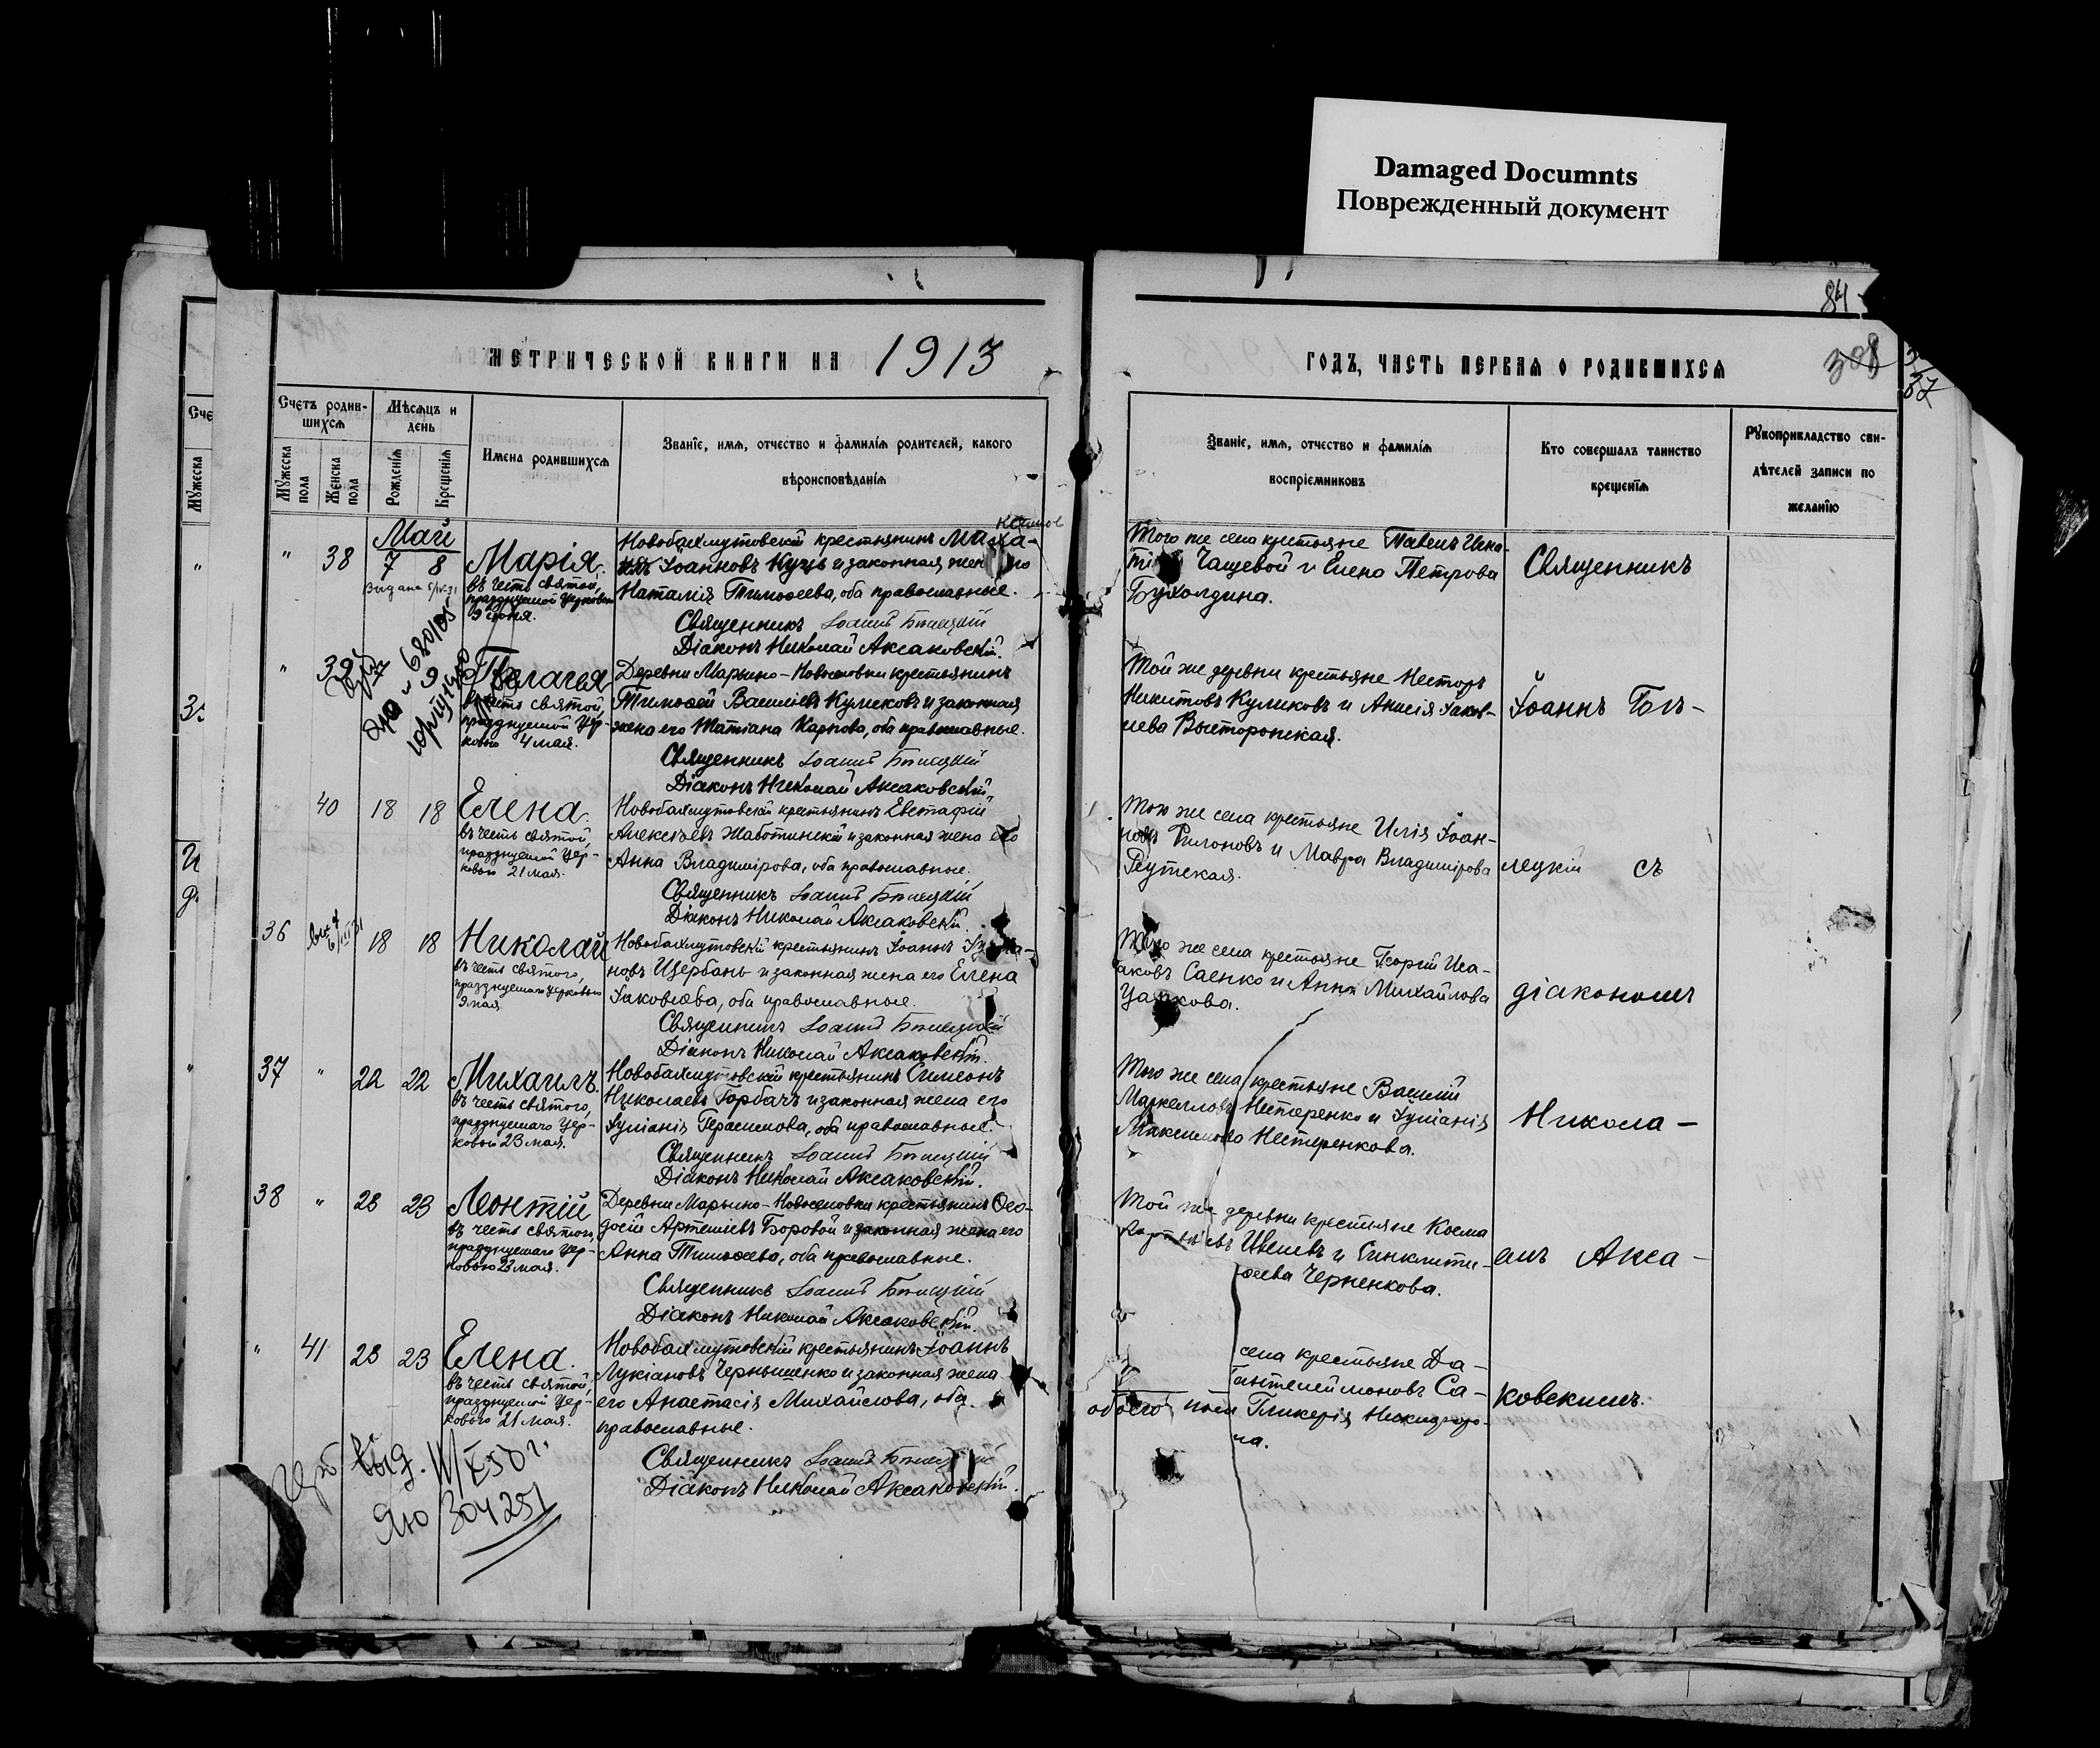 Damaged Documnts
Поврежденный документ
84
МЕТРИЧЕСКОЙ КНИГИ НА 1913
ГОДЪ, ЧАСТЬ ПЕРВАЯ О РОДИВШИХСЯ
308
37
Сче
Мужеска
Счетъ родив-
шихся
Мужеска пола
Женска пола
Мѣсяцъ и
день
Рожденія
Крещенія
Имена родившихся
Званіе, имя, отчество и фамилія родителей, какого
вѣроисповѣданія
Званіе, имя, отчество и фамилія
воспріемниковъ
Кто совершалъ таинство
крещенія
Рукоприкладство сви-
дѣтелей записи по
желанію
Май
" 38 7 8 Марія
въ честь святой,
празднуемой Церковью
Новобахмутовскій крестьянинъ
Іоанновъ Куць и законная
Наталія Тимоѳеева, оба православные.
Священникъ Іоаннъ Бѣлецкій
Діаконъ Николай Аксаковскій.
Того же села крестьяне Павелъ Игна-
Чащевой и Елена Петрова
Бухолдина.
Священникъ
" 39 7 9 Пелагея
въ честь святой,
празднуемой Цер-
ковью 4 мая.
680105
Деревни Марьино-Новоселовки крестьянинъ
Тимоѳей Васильевъ Куликовъ и законная
жена его Татіана Карпова, оба православные.
Священникъ Іоаннъ Бѣлецкій
Діаконъ Николай Аксаковскій.
Той же деревни крестьяне Несторъ
Никитовъ Куликовъ и Анисія Іаков-
лева Выторопская.
Іоаннъ Бѣ-
40 18 18 Елена.
въ честь святой,
празднуемой Цер-
ковью 21 мая.
Новобахмутовскій крестьянинъ Евстафій
Алексѣевъ Жаботинскій и законная жена его
Анна Владимірова, оба православные.
Священникъ Іоаннъ Бѣлецкій
Діаконъ Николай Аксаковскій.
Того же села крестьяне Илія Іоан-
новъ Филоновъ и Мавра Владимірова
Реутская.
лецкій съ
36 18 18 Николай
въ честь святого,
празднуемаго Церковью
9 мая
Новобахмутовскій крестьянинъ Іоаннъ
новъ Щербань и законная жена его Елена
Іаковлева, оба православные.
Священникъ Іоаннъ Бѣлецкій
Діаконъ Николай Аксаковскій.
Того же села крестьяне Георгій Иса-
аковъ Саенко и Анна Михайлова
діакономъ
37 " 22 22 Михаилъ.
въ честь святого,
празднуемаго Цер-
ковью 23 мая.
Новобахмутовскій крестьянинъ Симеонъ
Николаевъ Горбачъ и законная жена его
Іуліанія Герасимова, оба православные.
Священникъ Іоаннъ Бѣлецкій
Діаконъ Николай Аксаковскій.
Того же села крестьяне Василій
Маркелловъ Нестеренко и Іуліанія
Максимова Нестеренкова.
Никола-
38 " 23 23 Леонтій
въ честь святого,
празднуемаго Цер-
ковью 23 мая.
Деревни Марьино-Новоселовки крестьянинъ Ѳео-
досій Артеміевъ Боровой и законная жена его
Анна Тимоѳеева, оба православные.
Священникъ Іоаннъ Бѣлецкій
Діаконъ Николай Аксаковскій.
Той же деревни крестьяне Косма
Ивлевъ и Синклити-
Черненкова.
емъ Акса-
" 41 23 23 Елена.
въ честь святой,
празднуемой Цер-
ковью 21 мая.
Новобахмутовскій крестьянинъ Іоаннъ
Лукіановъ Чернышенко и законная жена
его Анастасія Михайлова, оба
православные.
Священникъ Іоаннъ
Діаконъ Николай Аксаковскій.
села крестьяне Да-
антелеймоновъ Са-
обоего пола Гликерія Никифоро-
ва.
ковскимъ.
выд.
304251